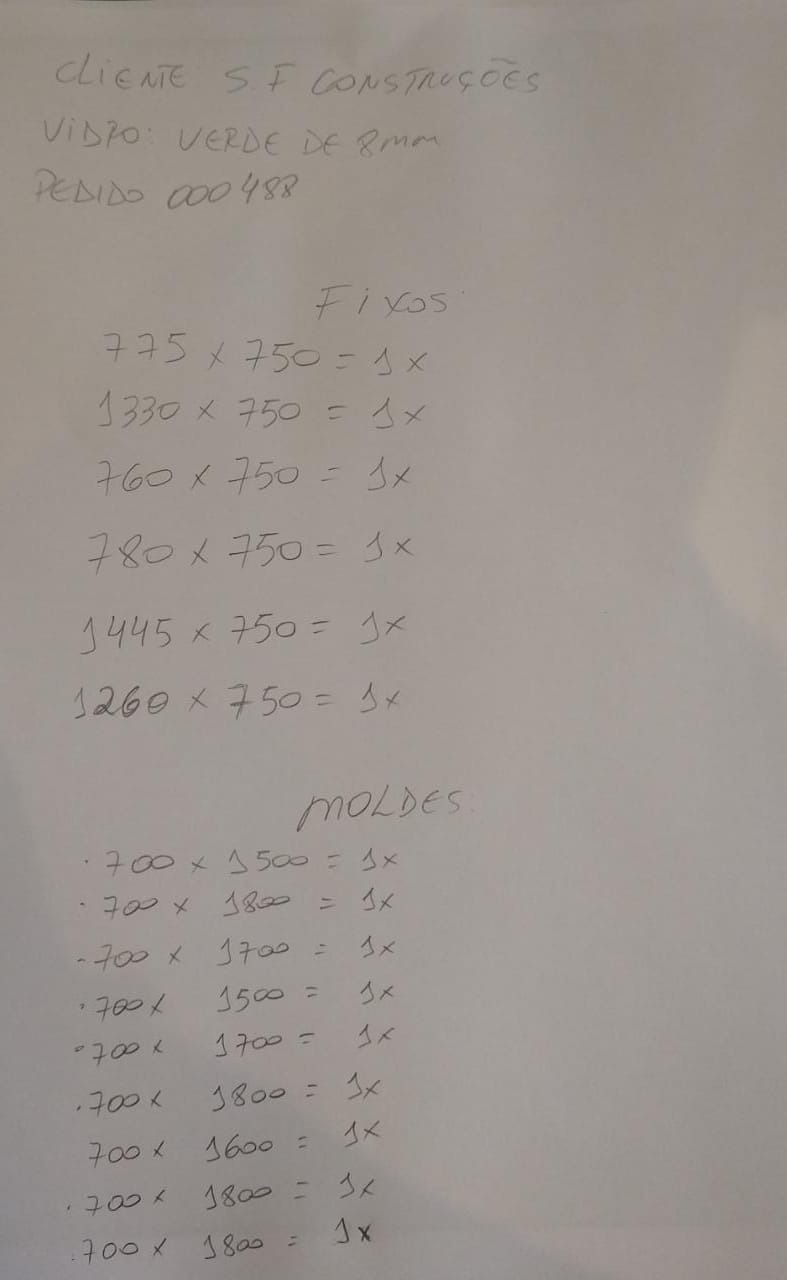 CLIENTE S.F CONSTRUÇÕES
VIDRO: VERDE DE 8mm
PEDIDO 000488
Fixos
775 x 750 = 1x
1330 x 750 = 1x
760 x 750 = 1x
780 x 750 = 1x
1445 x 750 = 1x
1260 x 750 = 1x
MOLDES
. 700 x 1500 = 1x
. 700 x 1800 = 1x
- 700 x 1700 = 1x
. 700 x 1500 = 1x
. 700 x 1700 = 1x
. 700 x 1800 = 1x
700 x 1600 = 1x
. 700 x 1800 = 1x
. 700 x 1800 = 1x